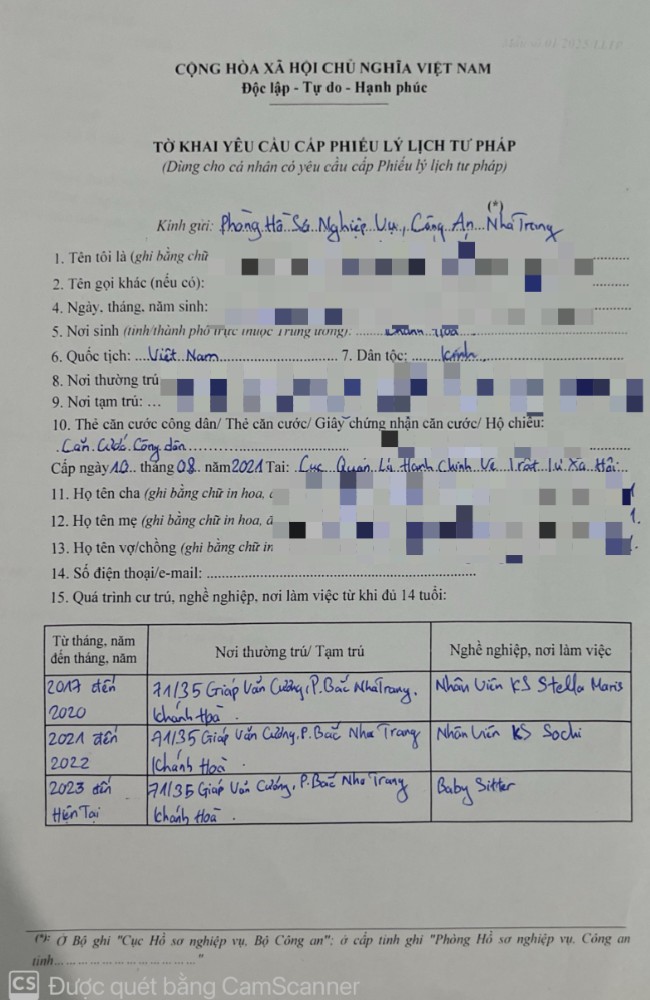 CỘNG HÒA XÃ HỘI CHỦ NGHĨA VIỆT NAM
Độc lập - Tự do - Hạnh phúc
TỜ KHAI YÊU CẦU CẤP PHIẾU LÝ LỊCH TƯ PHÁP
(Dùng cho cá nhân có yêu cầu cấp Phiếu lý lịch tư pháp)
(*)
Kính gửi: Phòng Hồ Sơ Nghiệp Vụ, Công An Nha Trang
1. Tên tôi là (ghi bằng chữ
2. Tên gọi khác (nếu có):
4. Ngày, tháng, năm sinh:
5. Nơi sinh (tỉnh/thành phố trực thuộc Trung ương):
6. Quốc tịch: Việt Nam 7. Dân tộc: Kinh
8. Nơi thường trú
9. Nơi tạm trú: ...
10. Thẻ căn cước công dân/ Thẻ căn cước/ Giấy chứng nhận căn cước/ Hộ chiếu:
Căn Cước Công dân
Cấp ngày 10 tháng 08 năm 2021 Tại: Cục Quản Lý Hành Chính Về Trật Tự Xã Hội
11. Họ tên cha (ghi bằng chữ in hoa,
12. Họ tên mẹ (ghi bằng chữ in hoa,
13. Họ tên vợ/chồng (ghi bằng chữ in
14. Số điện thoại/e-mail:
15. Quá trình cư trú, nghề nghiệp, nơi làm việc từ khi đủ 14 tuổi:
Từ tháng, năm đến tháng, năm Nơi thường trú/ Tạm trú Nghề nghiệp, nơi làm việc
2017 đến 71/35 Giáp Văn Cương, P. Bắc Nha Trang, Nhân Viên KS Stella Maris
2020 Khánh Hoà.
2021 đến 71/35 Giáp Văn Cương, P. Bắc Nha Trang Nhân Viên KS Sochi
2022 Khánh Hoà.
2023 đến 71/35 Giáp Văn Cương, P. Bắc Nha Trang Baby Sitter
Hiện Tại Khánh Hoà.
(*): Ở Bộ ghi "Cục Hồ sơ nghiệp vụ, Bộ Công an"; ở cấp tỉnh ghi "Phòng Hồ sơ nghiệp vụ, Công an
tỉnh... ... ... ... ... ... ... ... "
CS Được quét bằng CamScanner